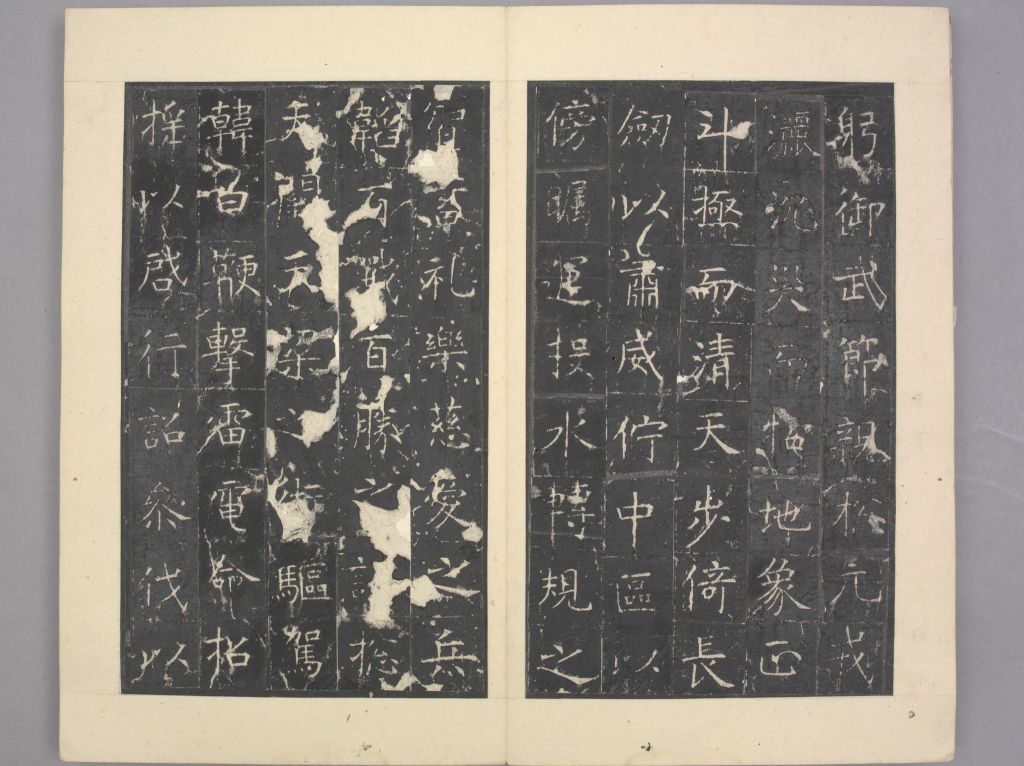 躬御武節親摠元戎
灑沉災而掃地象正
斗極而清天步倚長
劔以肅威佇中區以
傍矚運投水轉規之
智畜礼樂慈愛之兵
韜百戰百勝之摠
天關天梁之街驅駕
韓白鞭擊雷電命招
搖以啓行詔參伐以